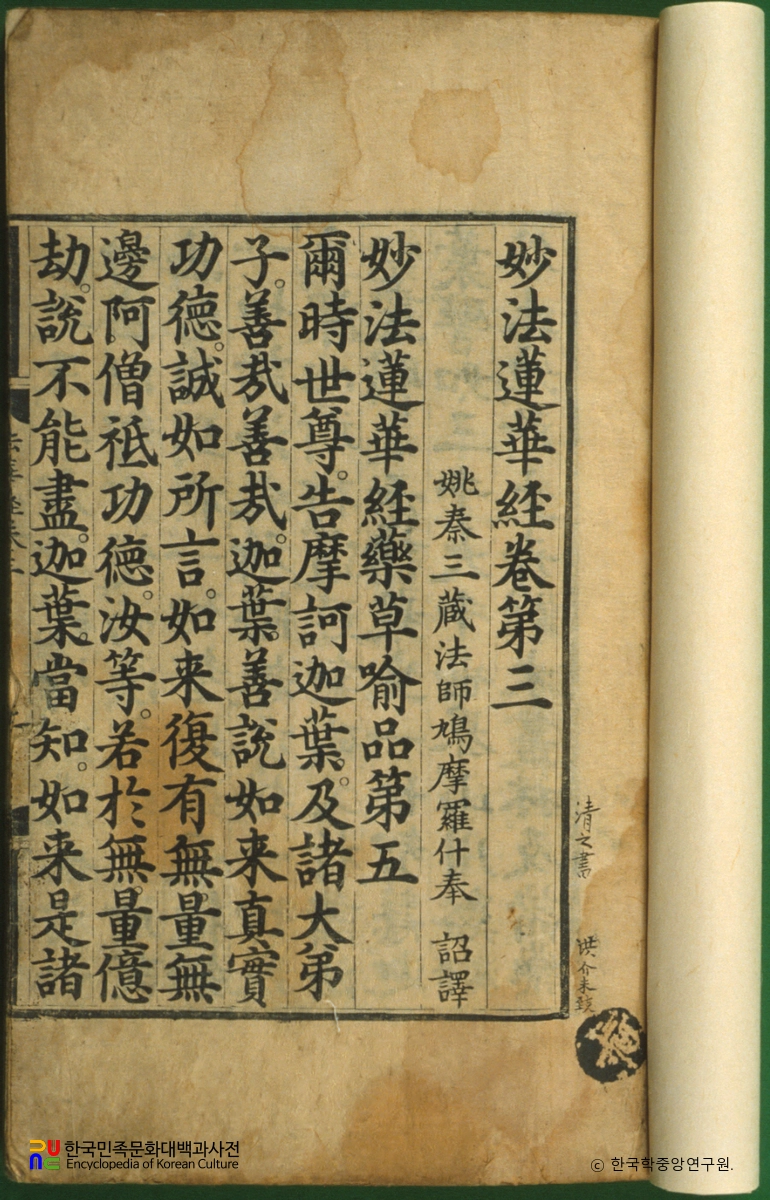 妙法蓮華経卷第三
姚秦三蔵法師鳩摩羅什奉 詔譯
妙法蓮華経藥草喻品第五
爾時世尊。告摩訶迦葉。及諸大弟
子。善哉善哉。迦葉。善說如来真實
功德。誠如所言。如来復有無量無
邊阿僧祇功德。汝等。若於無量億
劫。說不能盡。迦葉。當知。如来是諸
清之書
한국민족문화대백과사전
Encyclopedia of Korean Culture
© 한국학중앙연구원.